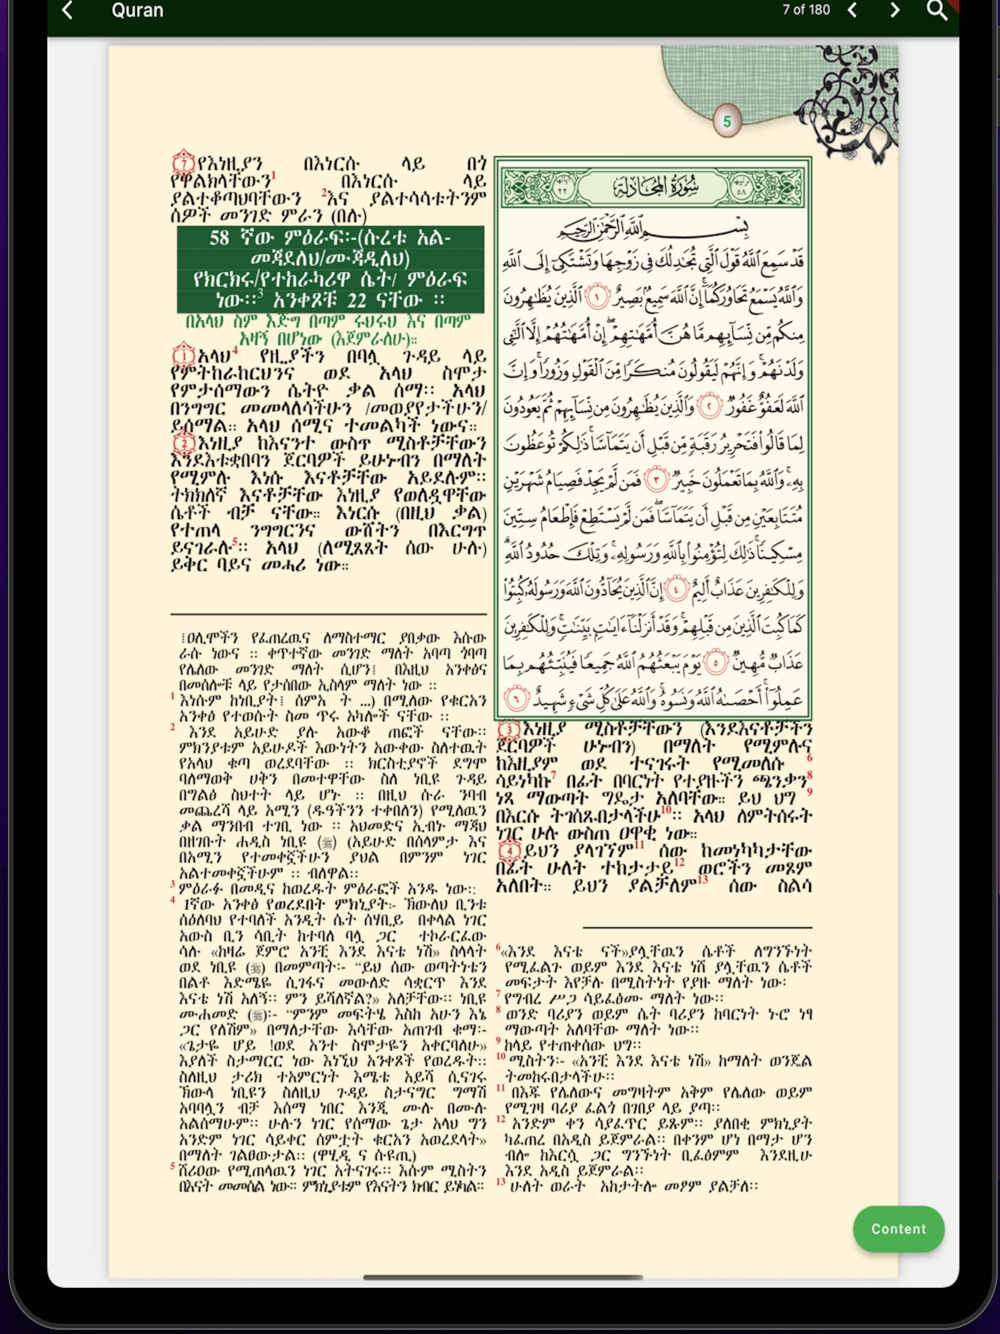 Quran
7 of 180
5
7 የእነዚያን በእነርሱ ላይ በጎ
የዋልክላቸውን1 በእነርሱ ላይ
ያልተቆጣህባቸውን 2እና ያልተሳሳቱትንም
ሰዎች መንገድ ምራን (በሉ)
58 ኛው ምዕራፍ፡-(ሱረቱ አል-
መጃደለህ/ሙጃዲላህ)
የክርክሩ/የተከራካሪዋ ሴት/ ምዕራፍ
ነው፡፡3 አንቀጾቹ 22 ናቸው ፡፡
በአላህ ስም እድግ በጣም ሩህሩህ እና በጣም
አዛኝ በሆነው (እጀምራለሁ)።
1 አላህ4 የዚያችን በባሏ ጉዳይ ላይ
የምትከራከርህንና ወደ አላህ ስሞታ
የምታሰማውን ሴትዮ ቃል ሰማ፡፡ አላህ
በንግግር መመላለሳችሁን /መወያየታችሁን/
ይሰማል። አላህ ሰሚና ተመልካች ነውና።
2 እነዚያ ከእናንተ ውስጥ ሚስቶቻቸውን
እንደእቱቋበባን ጀርባዎች ይሁኑብን በማለት
የሚምሉ እነሱ እናቶቻቸው አይደሉም፡፡
ትክክለኛ እናቶቻቸው እነዚያ የወለዷቸው
ሴቶች ብቻ ናቸው። እነርሱ (በዚህ ቃል)
የተጠላ ንግግርንና ውሸትን በእርግጥ
ይናገራሉ5፡፡ አላህ (ለሚጸጸት ሰው ሁሉ)
ይቅር ባይና መሓሪ ነው።
፤ዐሊሞችን የፈጠረዉና ለማስተማር ያበቃው እሱው
ራሱ ነውና ፡፡ ቀጥተኛው መንገድ ማለት አባጣ ጎባጣ
የሌለው መንገድ ማለት ሲሆን፤ በእዚህ አንቀፅና
በመሰሎቹ ላይ የታሰበው ኢስላም ማለት ነው ፡፡
1 እነሱም ከነቢያት፤ ሰምአ ት ...) በሚለው የቁርአን
አንቀፅ የተወሱት ስመ ጥሩ አካሎች ናቸው ፡፡
2 እንደ አይሁድ ያሉ አውቆ ጠፎች ናቸው፡፡
ምክንያቱም አይሁዶች እውነትን አውቀው ስለተዉት
የአላህ ቁጣ ወረደባቸው ፡፡ ክርስቲያኖች ደግሞ
ባለማወቅ ሀቅን በመተዋቸው ስለ ነቢዩ ጉዳይ
በግልፅ ስህተት ላይ ሆኑ ፡፡ በዚህ ሱራ ንባብ
መጨረሻ ላይ አሚን (ዱዓችንን ተቀበለን) የሚለዉን
ቃል ማንበብ ተገቢ ነው ፡፡ አህመድና ኢብኑ ማጃህ
በዘገቡት ሐዲስ ነቢዩ (ﷺ) (አይሁድ በሰላምታ እና
በአሚን የተመቀኟችሁን ያህል በምንም ነገር
አልተመቀኟችሁም ፡፡ ብለዋል፡፡
3 ምዕራፉ በመዲና ከወረዱት ምዕራፎች አንዱ ነው፡፡
4 1ኛው አንቀፅ የወረደበት ምክኒያት፡- ኸውለህ ቢንቱ
ሰዕለባህ የተባለች አንዲት ሴት ሰሃቢይ በቀላል ነገር
አውስ ቢን ሳቢት ከተባለ ባሏ ጋር ተኮራርፈው
ሳሉ «ከዛሬ ጀምሮ አንቺ እንደ እናቴ ነሽ» ስላላት
ወደ ነቢዩ (ﷺ) በመምጣት፡- “ይህ ሰው ወጣትነቴን
በልቶ እድሜዬ ሲገፋና መውለድ ሳቋርጥ እንደ
እናቴ ነሽ አለኝ፡፡ ምን ይሻለኛል?» አለቻቸው፡፡ ነቢዩ
ሙሐመድ (ﷺ)፡- “ምንም መፍትሄ እስከ አሁን እኔ
ጋር የለሽም» በማለታቸው እሳቸው አጠገብ ቁማ፡-
«ጌታዬ ሆይ !ወደ አንተ ስሞታዬን አቀርባለሁ»
እያለች ስታማርር ነው እነኚህ አንቀጾች የወረዱት፡፡
ስለዚህ ታሪክ ተአምርነት እሜቴ አይሻ ሲናገሩ
ኸውላ ነቢዩን ስለዚህ ጉዳይ ስታናግር ግማሽ
አባባሏን ብቻ እሰማ ነበር እንጂ ሙሉ በሙሉ
አልሰማሁም፡፡ ሁሉን ነገር የሰማው ጌታ አላህ ግን
አንድም ነገር ሳይቀር ሰምቷት ቁርአን አወረደላት»
በማለት ገልፀውታል፡፡ (ዋሂዲ ና ሱዩጢ)
5 ሸሪዐው የሚጠላዉን ነገር አትናገሩ፡፡ እሱም ሚስትን
በእናት መመሰል ነው፡፡ ምክኒያቱም የእናትን ክብር ይነካል፡፡
سُورَةُ المُجَادلة
بِسْمِ اللَّهِ الرَّحْمَٰنِ الرَّحِيمِ
قَدْ سَمِعَ اللَّهُ قَوْلَ الَّتِي تُجَادِلُكَ فِي زَوْجِهَا وَتَشْتَكِي إِلَى اللَّهِ
وَاللَّهُ يَسْمَعُ تَحَاوُرَكُمَا إِنَّ اللَّهَ سَمِيعٌ بَصِيرٌ ١ الَّذِينَ يُظَاهِرُونَ
مِنكُم مِّن نِّسَائِهِم مَّا هُنَّ أُمَّهَاتِهِمْ إِنْ أُمَّهَاتُهُمْ إِلَّا اللَّائِي
وَلَدْنَهُمْ وَإِنَّهُمْ لَيَقُولُونَ مُنكَرًا مِّنَ الْقَوْلِ وَزُورًا وَإِنَّ
اللَّهَ لَعَفُوٌّ غَفُورٌ ٢ وَالَّذِينَ يُظَاهِرُونَ مِن نِّسَائِهِمْ ثُمَّ يَعُودُونَ
لِمَا قَالُوا فَتَحْرِيرُ رَقَبَةٍ مِّن قَبْلِ أَن يَتَمَاسَّا ذَٰلِكُمْ تُوعَظُونَ
بِهِ وَاللَّهُ بِمَا تَعْمَلُونَ خَبِيرٌ ٣ فَمَن لَّمْ يَجِدْ فَصِيَامُ شَهْرَيْنِ
مُتَتَابِعَيْنِ مِن قَبْلِ أَن يَتَمَاسَّا فَمَن لَّمْ يَسْتَطِعْ فَإِطْعَامُ سِتِّينَ
مِسْكِينًا ذَٰلِكَ لِتُؤْمِنُوا بِاللَّهِ وَرَسُولِهِ وَتِلْكَ حُدُودُ اللَّهِ
وَلِلْكَافِرِينَ عَذَابٌ أَلِيمٌ ٤ إِنَّ الَّذِينَ يُحَادُّونَ اللَّهَ وَرَسُولَهُ كُبِتُوا
كَمَا كُبِتَ الَّذِينَ مِن قَبْلِهِمْ وَقَدْ أَنزَلْنَا آيَاتٍ بَيِّنَاتٍ وَلِلْكَافِرِينَ
عَذَابٌ مُّهِينٌ ٥ يَوْمَ يَبْعَثُهُمُ اللَّهُ جَمِيعًا فَيُنَبِّئُهُم بِمَا
عَمِلُوا أَحْصَاهُ اللَّهُ وَنَسُوهُ وَاللَّهُ عَلَىٰ كُلِّ شَيْءٍ شَهِيدٌ ٦
3 እነዚያ ሚስቶቻቸውን (እንደእናቶቻትን
ጀርባዎች ሁኑብን) በማለት የሚምሉና
ከእዚያም ወደ ተናገሩት የሚመለሱ 6
ሳይነካኩ7 በፊት በባርነት የተያዙችን ጫንቃን8
ነጻ ማውጣት ግዴታ አለባቸው። ይህ ህግ 9
በእርሱ ትገሰጹበታላችሁ10፡፡ አላህ ለምትሰሩት
ነገር ሁሉ ውስጠ ዐዋቂ ነው።
4 ይህን ያላገኘም11 ሰው ከመነካካታቸው
በፊት ሁለት ተከታታይ12 ወሮችን መጾም
አለበት። ይህን ያልቻለም13 ሰው ስልሳ
6 «እንደ እናቴ ናች»ያሏቸዉን ሴቶች ለግንኙነት
የሚፈልጉ ወይም እንደ እናቴ ነሽ ያሏቸዉን ሴቶች
መፍታት እየቻሉ በሚስትነት የያዙ ማለት ነው፡
7 የግብረ ሥጋ ሳይፈፅሙ ማለት ነው፡፡
8 ወንድ ባሪያን ወይም ሴት ባሪያን ከባርነት ኑሮ ነፃ
ማውጣት አለባቸው ማለት ነው፡፡
9 ከላይ የተጠቀሰው ህግ፡፡
10 ሚስትን፡- «አንቺ እንደ እናቴ ነሽ» ከማለት ወንጀል
ትመከሩበታላችሁ፡፡
11 በእጁ የሌለውና መግዛትም አቅም የሌለው ወይም
የሚገዛ ባሪያ ፈልጎ በገበያ ላይ ያጣ፡፡
12 አንድም ቀን ሳያፈጥር ይጹም፡፡ ያለበቂ ምክኒያት
ካፈጠረ በአዲስ ይጀምራል፡፡ በቀንም ሆነ በማታ ሆን
ብሎ ከእርሷ ጋር ግንኙነት ቢፈፅምም እንደዚሁ
እንደ አዲስ ይጀምራል፡፡
13 ሁለት ወራት አከታትሎ መፆም ያልቻለ፡፡
Content